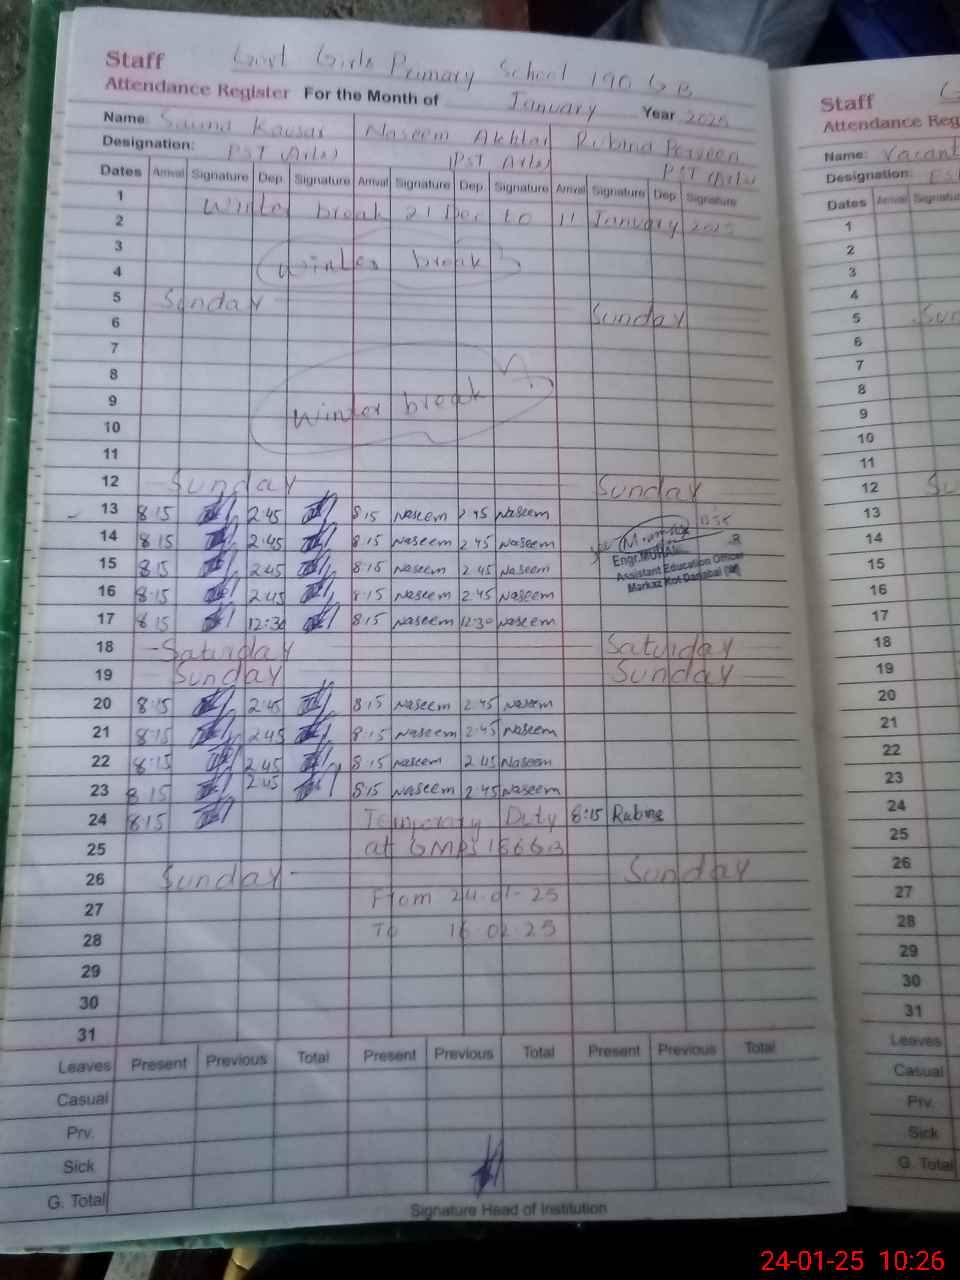 Staff Govt Girls Primary School 190 GB
Attendance Register For the Month of January Year 2025
Name: Saima Kausar Naseem Akhtar Rubina Perveen
Designation: PST (Arts) PST (Arts) PST (Arts)
Dates Arrival Signature Dep. Signature Arrival Signature Dep. Signature Arrival Signature Dep Signature
1
2 Winter break 21 Dec to 11 January 2025
3
4 Winter break
5 Sunday Sunday
6
7
8
9 Winter break
10
11
12 Sunday Sunday
13 8:15 2:45 8:15 Naseem 2:45 Naseem
14 8:15 2:45 8:15 Naseem 2:45 Naseem
15 8:15 2:45 8:15 Naseem 2:45 Naseem
16 8:15 2:45 8:15 Naseem 2:45 Naseem
17 8:15 12:30 8:15 Naseem 12:30 Naseem
Assistant Education Officer
18 Saturday Saturday
19 Sunday Sunday
20 8:15 2:45 8:15 Naseem 2:45 Naseem
21 8:15 2:45 8:15 Naseem 2:45 Naseem
22 8:15 2:45 8:15 Naseem 2:45 Naseem
23 8:15 2:45 8:15 Naseem 2:45 Naseem
24 8:15 Temporary Duty 8:15 Rubina
25 at GMPS
26 Sunday Sunday
27 From 24-01-25
28 To 16-02-25
29
30
31
Leaves Present Previous Total Present Previous Total Present Previous Total
Casual
Prv.
Sick
G. Total
Signature Head of Institution
Staff
Attendance Reg
Name: Vacant
Designation:
Dates Arrival Signatu
1
2
3
4
5 Sun
6
7
8
9
10
11
12 Su
13
14
15
16
17
18
19
20
21
22
23
24
25
26
27
28
29
30
31
Leaves
Casual
Prv.
Sick
G. Total
24-01-25 10:26